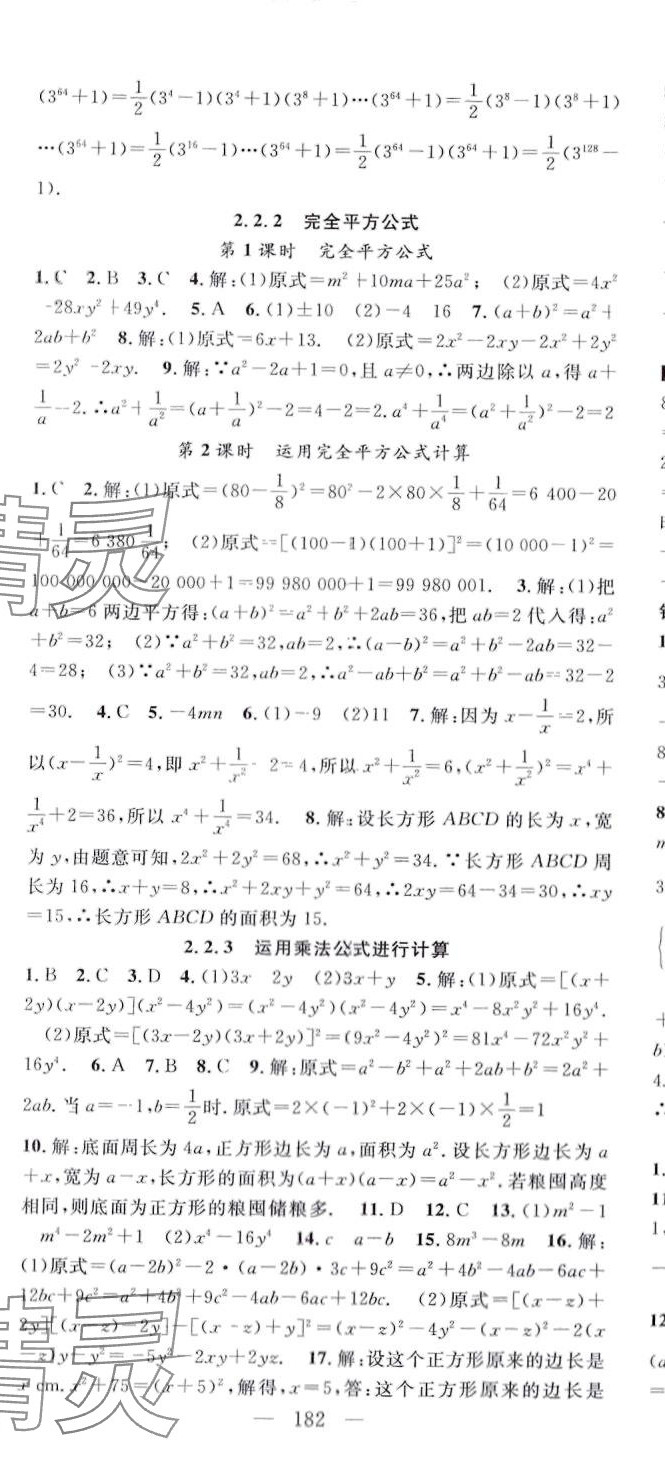 (3⁶⁴+1)=1/2(3⁴-1)(3⁴+1)(3⁸+1)…(3⁶⁴+1)=1/2(3⁸-1)(3⁸+1)
…(3⁶⁴+1)=1/2(3¹⁶-1)…(3⁶⁴+1)=1/2(3⁶⁴-1)(3⁶⁴+1)=1/2(3¹²⁸-
1).
2.2.2 完全平方公式
第1课时 完全平方公式
1.C 2.B 3.C 4.解:(1)原式=m²+10ma+25a²; (2)原式=4x²
-28xy²+49y⁴. 5.A 6.(1)±10 (2)-4 16 7.(a+b)²=a²+
2ab+b² 8.解:(1)原式=6x+13. (2)原式=2x²-2xy-2x²+2y²
=2y²-2xy. 9.解:∵a²-2a+1=0,且a≠0,∴两边除以a,得a+
1/a-2.∴a²+1/a²=(a+1/a)²-2=4-2=2.a⁴+1/a⁴=(a²+1/a²)²-2=2
第2课时 运用完全平方公式计算
1.C 2.解:(1)原式=(80-1/8)²=80²-2×80×1/8+1/64=6 400-20
+1/64=6 380 1/64; (2)原式=[(100-1)(100+1)]²=(10 000-1)²=
100 000 000-20 000+1=99 980 000+1=99 980 001. 3.解:(1)把
a+b=6两边平方得:(a+b)²=a²+b²+2ab=36,把ab=2代入得:a²
+b²=32; (2)∵a²+b²=32,ab=2,∴(a-b)²=a²+b²-2ab=32-
4=28; (3)∵a²+b²=32,ab=2,∴a²-ab+b²=a²+b²-ab=32-2
=30. 4.C 5.-4mn 6.(1)-9 (2)11 7.解:因为x-1/x=2,所
以(x-1/x)²=4,即x²+1/x²-2=4.所以x²+1/x²=6,(x²+1/x²)²=x⁴+
1/x⁴+2=36,所以x⁴+1/x⁴=34. 8.解:设长方形ABCD的长为x,宽
为y,由题意可知,2x²+2y²=68,∴x²+y²=34.∵长方形ABCD周
长为16,∴x+y=8,∴x²+2xy+y²=64,∴2xy=64-34=30,∴xy
=15,∴长方形ABCD的面积为15.
2.2.3 运用乘法公式进行计算
1.B 2.C 3.D 4.(1)3x 2y (2)3x+y 5.解:(1)原式=[(x+
2y)(x-2y)](x²-4y²)=(x²-4y²)(x²-4y²)=x⁴-8x²y²+16y⁴.
(2)原式=[(3x-2y)(3x+2y)]²=(9x²-4y²)²=81x⁴-72x²y²+
16y⁴. 6.A 7.B 8.C 9.解:原式=a²-b²+a²+2ab+b²=2a²+
2ab.当a=-1,b=1/2时.原式=2×(-1)²+2×(-1)×1/2=1
10.解:底面周长为4a,正方形边长为a,面积为a².设长方形边长为a
+x,宽为a-x,长方形的面积为(a+x)(a-x)=a²-x².若粮囤高度
相同,则底面为正方形的粮囤储粮多. 11.D 12.C 13.(1)m²-1
m⁴-2m²+1 (2)x⁴-16y⁴ 14.c a-b 15.8m³-8m 16.解:
(1)原式=(a-2b)²-2·(a-2b)·3c+9c²=a²+4b²-4ab-6ac+
12bc+9c²=a²+4b²+9c²-4ab-6ac+12bc. (2)原式=[(x-z)+
2y][(x-z)-2y]-[(x-z)+y]²=(x-z)²-4y²-(x-z)²-2(x
-z)y-y²=-5y²-2xy+2yz. 17.解:设这个正方形原来的边长是
x cm.x²+75=(x+5)²,解得,x=5,答:这个正方形原来的边长是
— 182 —
精灵
精灵